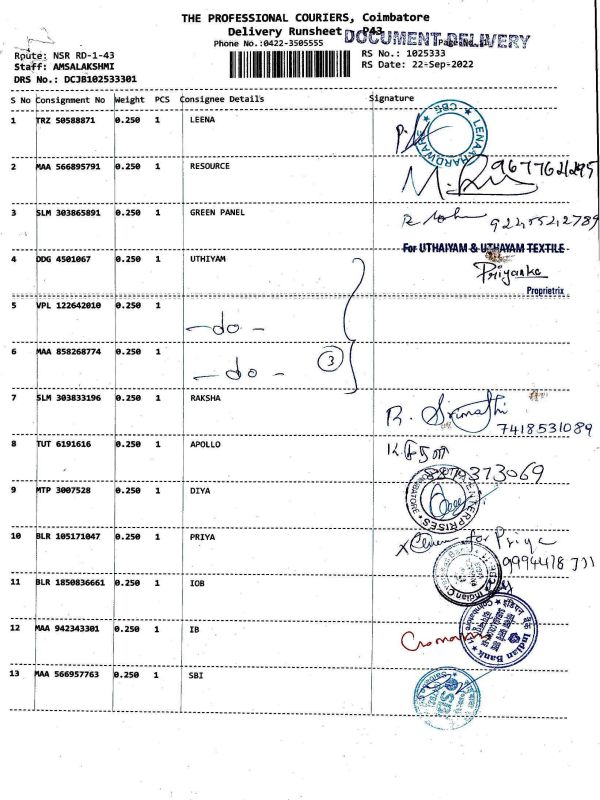 THE PROFESSIONAL COURIERS, Coimbatore
Delivery Runsheet P43
DOCUMENT DELIVERY
Phone No.:0422-3505555
Route: NSR RD-1-43
RS No.: 1025333
Staff: AMSALAKSHMI
RS Date: 22-Sep-2022
DRS No.: DCJB102533301
S No Consignment No Weight PCS Consignee Details Signature
1 TRZ 50588871 0.250 1 LEENA
2 MAA 566895791 0.250 1 RESOURCE
3 SLM 303865891 0.250 1 GREEN PANEL
For UTHAIYAM & UTHAYAM TEXTILE
4 DDG 4501067 0.250 1 UTHIYAM
Priyanka
Proprietrix
5 VPL 122642010 0.250 1
-do-
6 MAA 858268774 0.250 1
3
-do-
7 SLM 303833196 0.250 1 RAKSHA
R. Srimathi
7418531089
8 TUT 6191616 0.250 1 APOLLO
9 MTP 3007528 0.250 1 DIYA
10 BLR 105171047 0.250 1 PRIYA
for Priya
11 BLR 1850836661 0.250 1 IOB
12 MAA 942343301 0.250 1 IB
Indian Bank
13 MAA 566957763 0.250 1 SBI